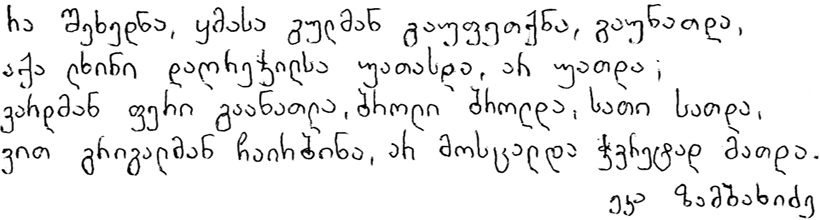 რა შეხედნა, ყმასა გულმან გაუფეთქნა, გაუნათდა,
აქა ლხინი დაღრეჭილსა უათასდა, არ უათდა;
ვარდმან ფერი გაანათლა, ბროლი ბროლდა, სათი სათდა,
ვით გრიგალმან ჩაირბინა, არ მოსცალდა ჭვრეტად მათდა.
ეკა ზამბახიძე